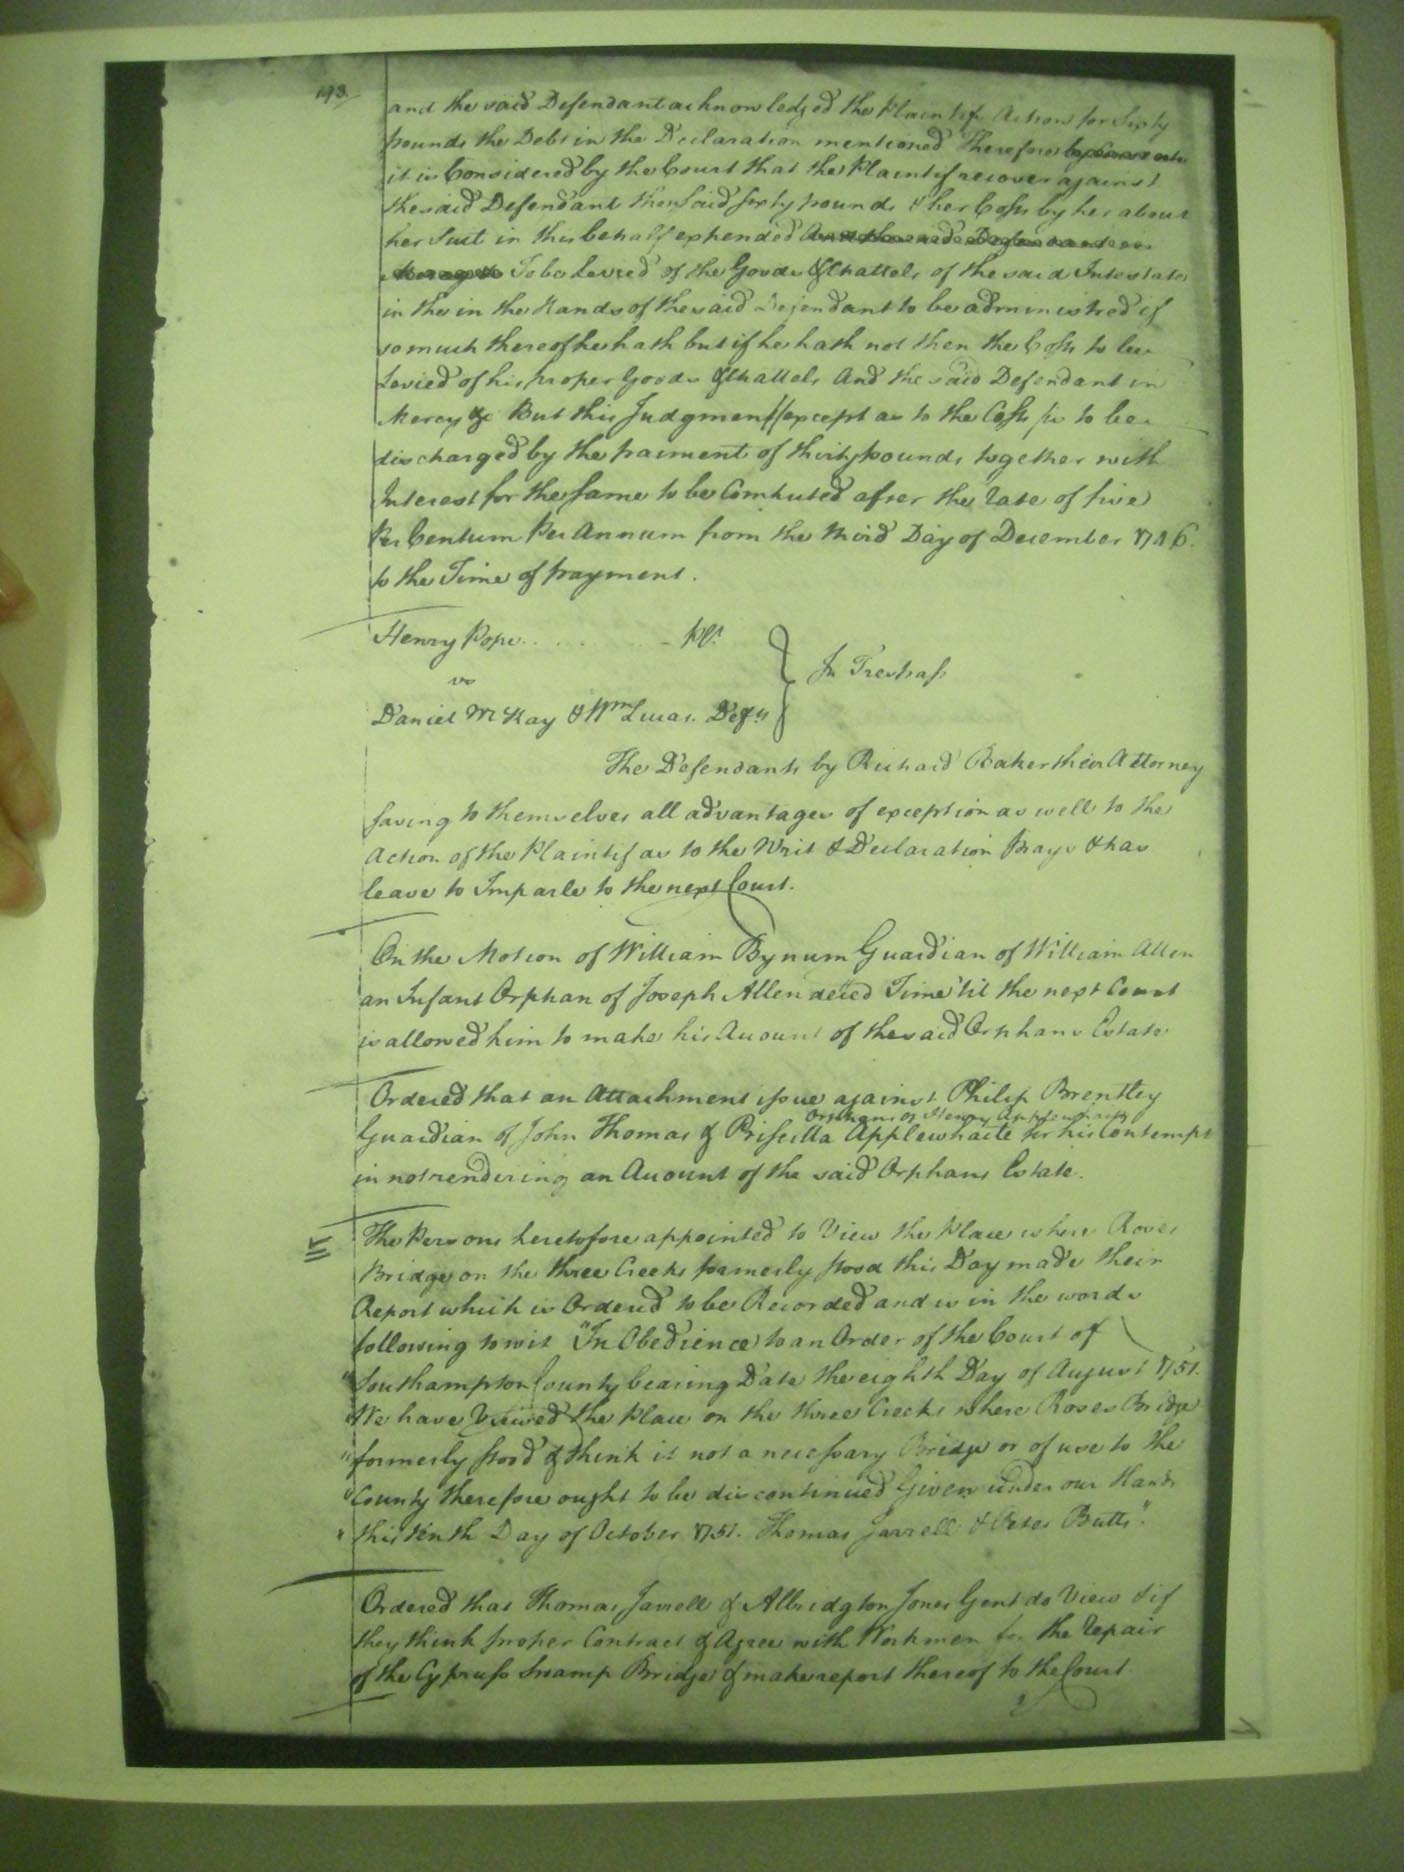 193
and the said Defendant acknowledged the Plaintifs Action for Sixty
pounds the Debt in the Declaration mentioned Therefore
it is Considered by the Court that the Plaintif recover against
the said Defendant the said sixty pounds & her Costs by her about
her Suit in this behalf expended And the said Defendant in
Mercy &c To be Levied of the Goods & Chattels of the said Intestate
in the in the Hands of the said Defendant to be administred if
so much thereof he hath but if he hath not then the Costs to be
Levied of his proper Goods & Chattels And the said Defendant in
Mercy &c But this Judgment (except as to the Costs) is to be
discharged by the paiment of thirty pounds together with
Interest for the same to be Computed after the rate of five
Per Centum Per Annum from the third Day of December 1746.
to the Time of payment.
Henry Pope Plt.
vs
In Trespass
Daniel McKay & Wm Lucas Defts
The Defendants by Richard Baker their Attorney
saving to themselves all advantages of exception as well to the
Action of the Plaintif as to the Writ & Declaration Prays & has
leave to Imparle to the next Court.
On the Motion of William Bynum Guardian of William Allen
an Infant Orphan of Joseph Allen deced Time 'til the next Court
is allowed him to make his Account of the said Orphans Estate
Ordered that an Attachment issue against Philip Brentley
orphans of Henry Applewhaite
Guardian of John Thomas & Priscilla Applewhaite for his Contempt
in not rendering an Account of the said Orphans Estate.
The Persons heretofore appointed to View the Place where Roses
Bridge on the three Creeks formerly stood this Day made their
Report which is Ordered to be Recorded and is in the words
following to wit "In Obedience to an Order of the Court of
"Southampton County bearing Date the eighth Day of August 1751.
"We have Viewed the Place on the three Creeks where Roses Bridge
"formerly stood & think it not a necessary Bridge or of use to the
"County therefore ought to be discontinued Given under our Hands
"this tenth Day of October 1751. Thomas Jarrell & Peter Butts".
Ordered that Thomas Jarrell & Albridgton Jones Gent do View & if
they think proper Contract & Agree with Workmen for the repair
of the Cypruss Swamp Bridge & make report thereof to the Court